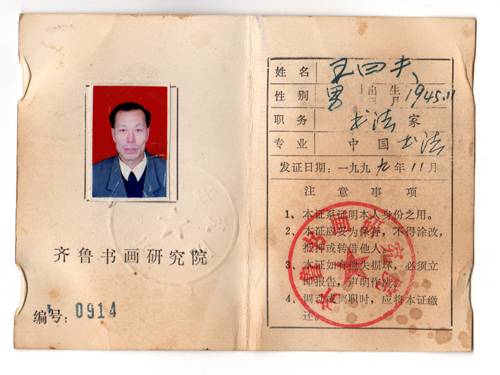 齐鲁书画研究院
编号: 0914
姓名 王四
性别 男 出生 1945.11
职务 书法家
专业 中国书法
发证日期:一九九九年11月
注意事项
1、本证系证明本人身份之用。
2、本证应妥为保存,不得涂改,
抵押或转借他人。
3、本证如有遗失损坏,必须立
即报告,声明作废。
4、调动或离职时,应将本证缴
齐鲁书画研究院